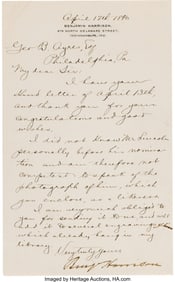 April 17th 1896
BENJAMIN HARRISON,
674 NORTH DELAWARE STREET,
INDIANAPOLIS, IND.
Geo. B. Ayres, Esq
Philadelphia, Pa.
My dear Sir:
I have your
kind letter of April 13th,
and thank you for your
congratulations and good
wishes.
I did not know Mr Lincoln
personally before his nomina-
tion and am therefore not
competent to speak of the
photograph of him, which
you enclose, as a likeness.
I am very much obliged to
you for sending it to me and will
add it to several engravings
which already hang in my
library.
Very truly yours
Benj Harrison
Imaged by Heritage Auctions, HA.com